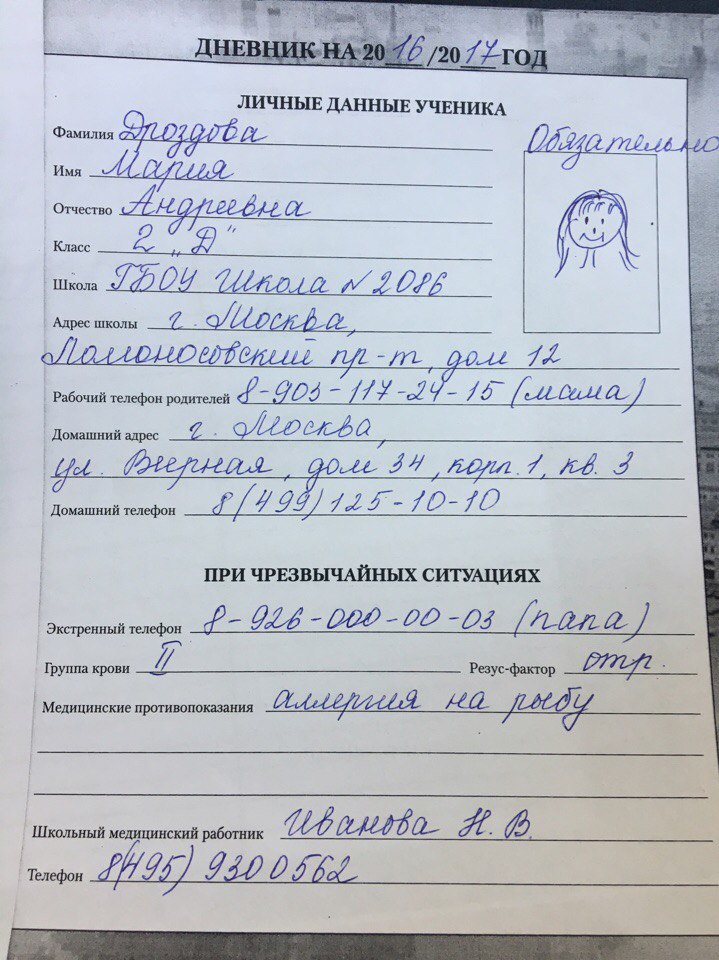 ДНЕВНИК НА 2016/2017 ГОД
ЛИЧНЫЕ ДАННЫЕ УЧЕНИКА
Фамилия Дроздова
Обязательно
Имя Мария
Отчество Андреевна
Класс 2 „Д"
Школа ГБОУ Школа № 2086
Адрес школы г. Москва,
Ломоносовский пр-т, дом 12
Рабочий телефон родителей 8-903-117-24-15 (мама)
Домашний адрес г. Москва,
ул. Верная, дом 34, корп. 1, кв. 3
Домашний телефон 8(499)125-10-10
ПРИ ЧРЕЗВЫЧАЙНЫХ СИТУАЦИЯХ
Экстренный телефон 8-926-000-00-03 (папа)
Группа крови II Резус-фактор отр.
Медицинские противопоказания аллергия на рыбу
Школьный медицинский работник Иванова Н. В.
Телефон 8(495) 9300562